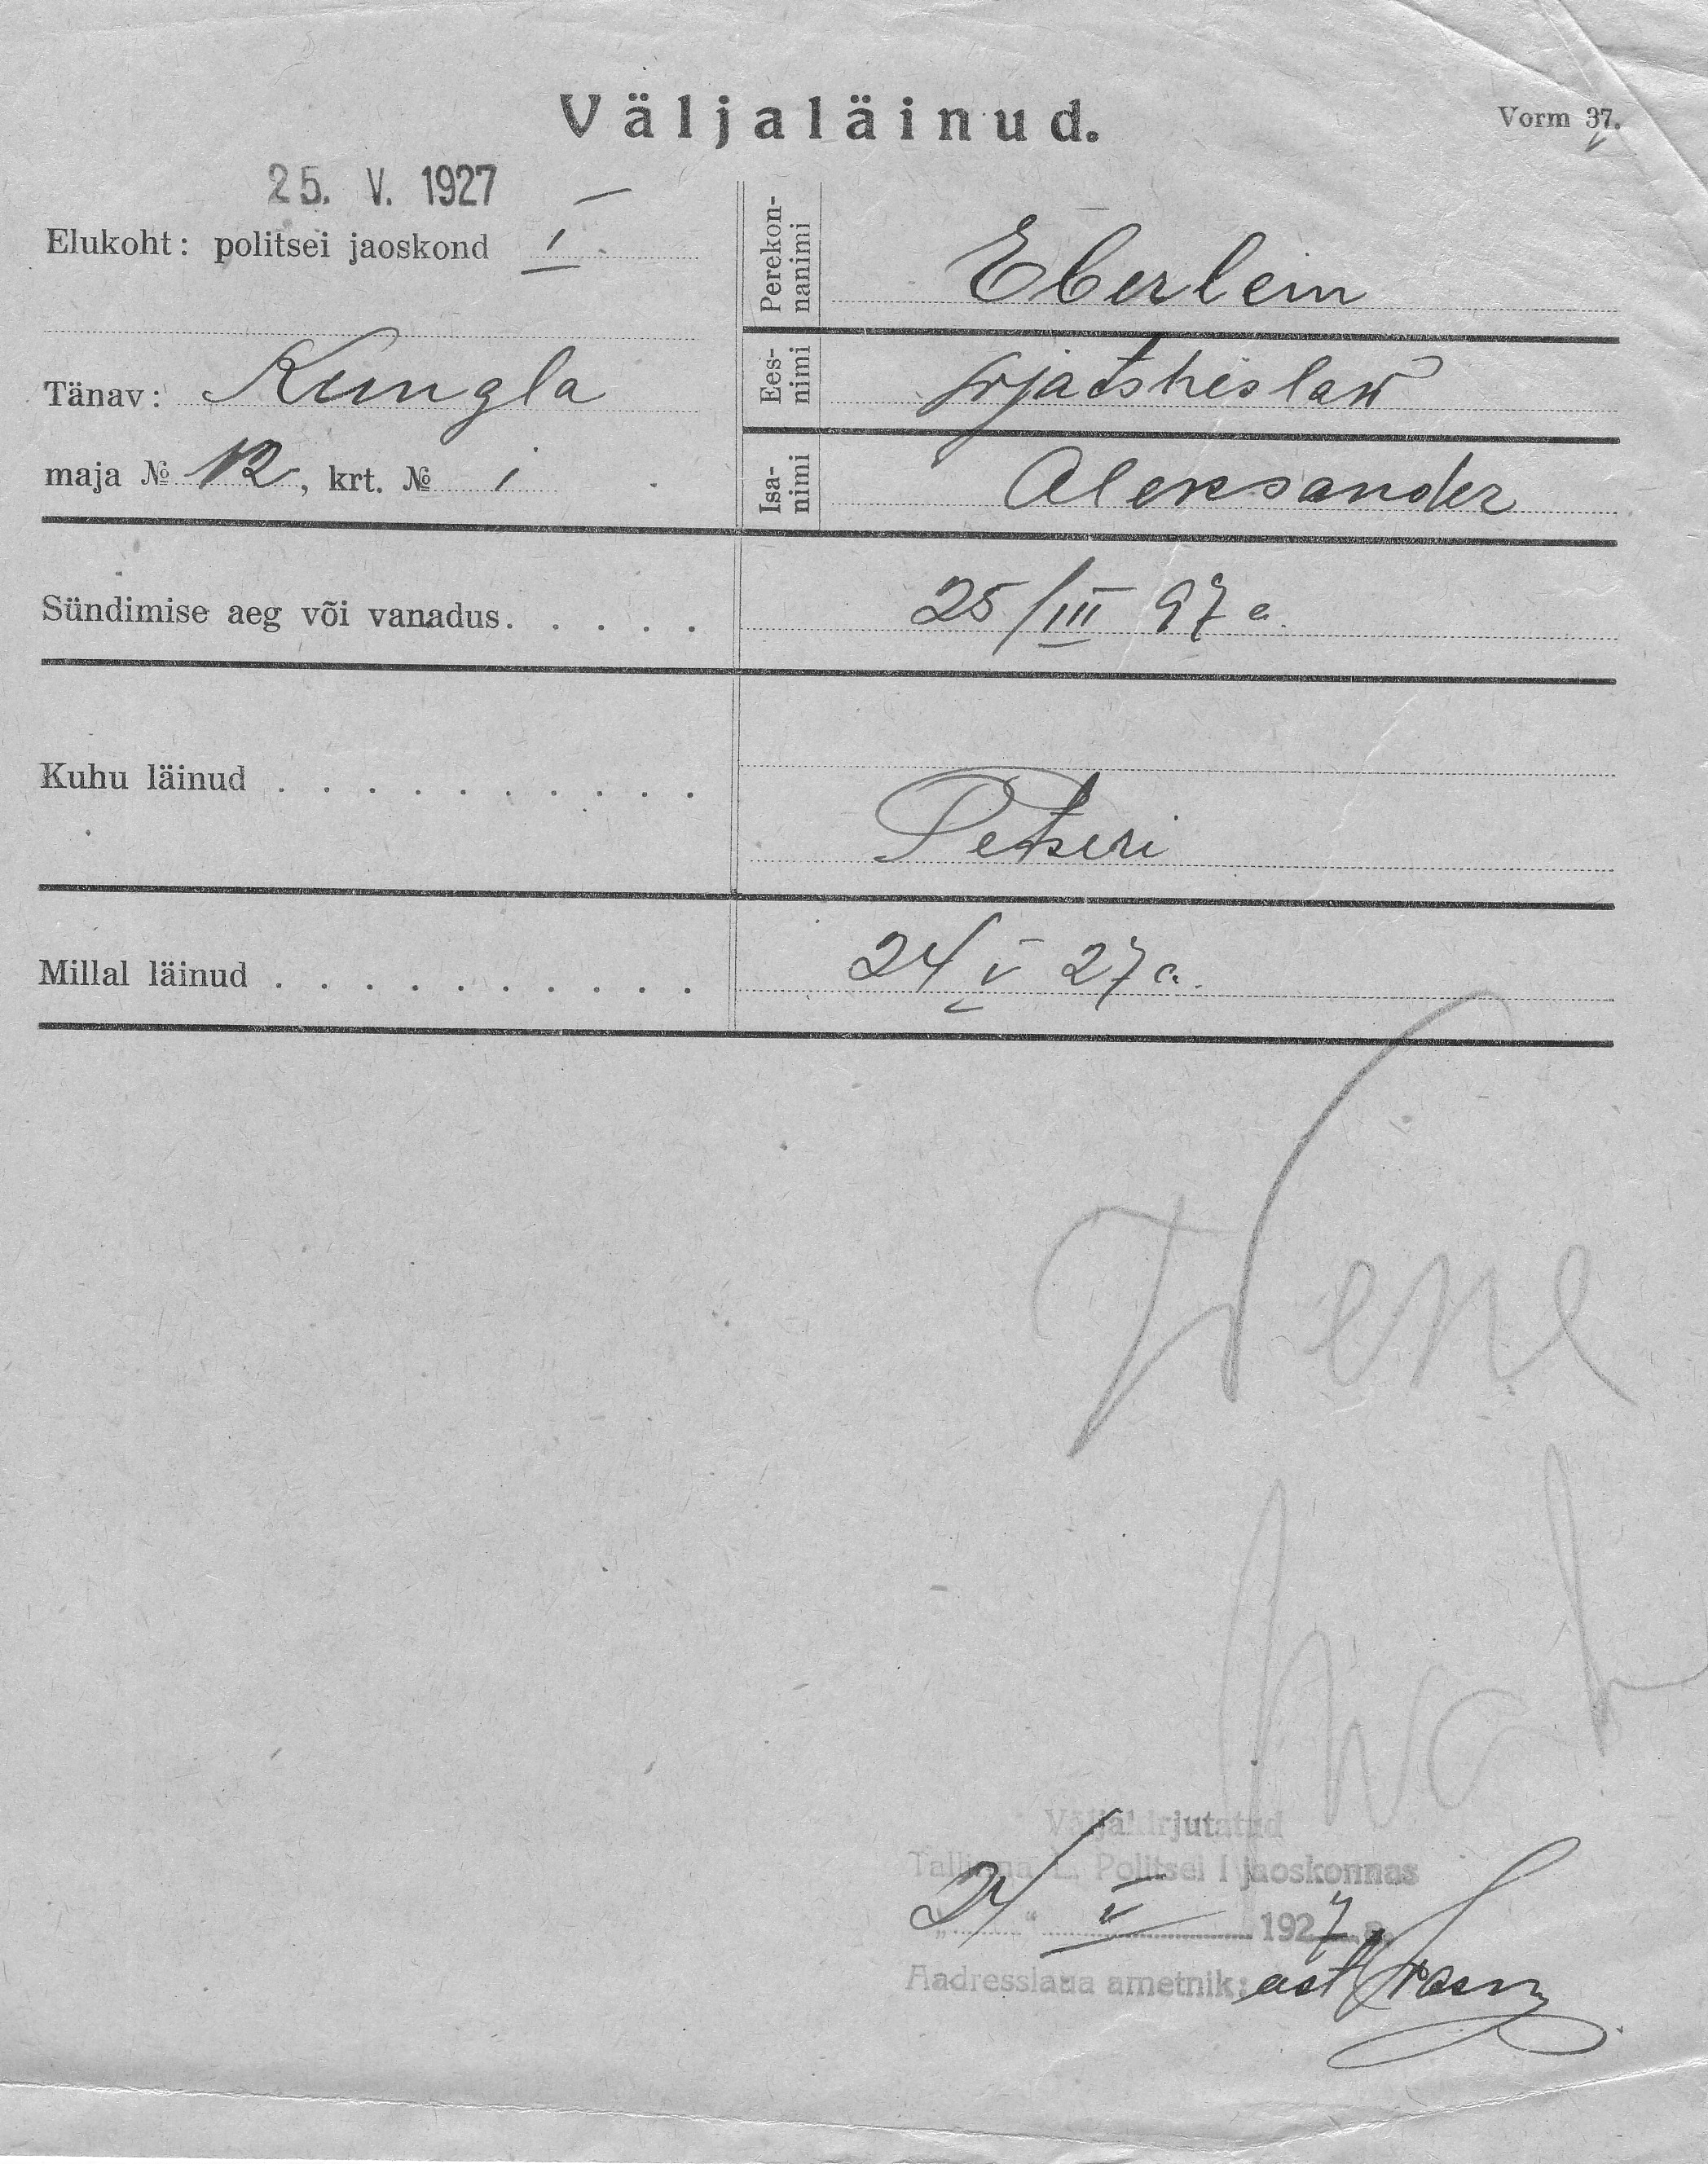 Väljaläinud.
Vorm 37.
25. V. 1927
Elukoht: politsei jaoskond I
Tänav: Kungla
maja № 12, krt. № 1
Perekon-
nanimi
Eberlein
Ees-
nimi
Wjatsheslaw
Isa-
nimi
Aleksander
Sündimise aeg või vanadus. . . . . 25/III 97 a.
Kuhu läinud . . . . . . . . . . Petseri
Millal läinud . . . . . . . . . . 24/V 27 a.
Wene
Väljakirjutatud
Tallinna L. Politsei I jaoskonnas
„24“ V 1927 a.
Aadresslaua ametnik: ast